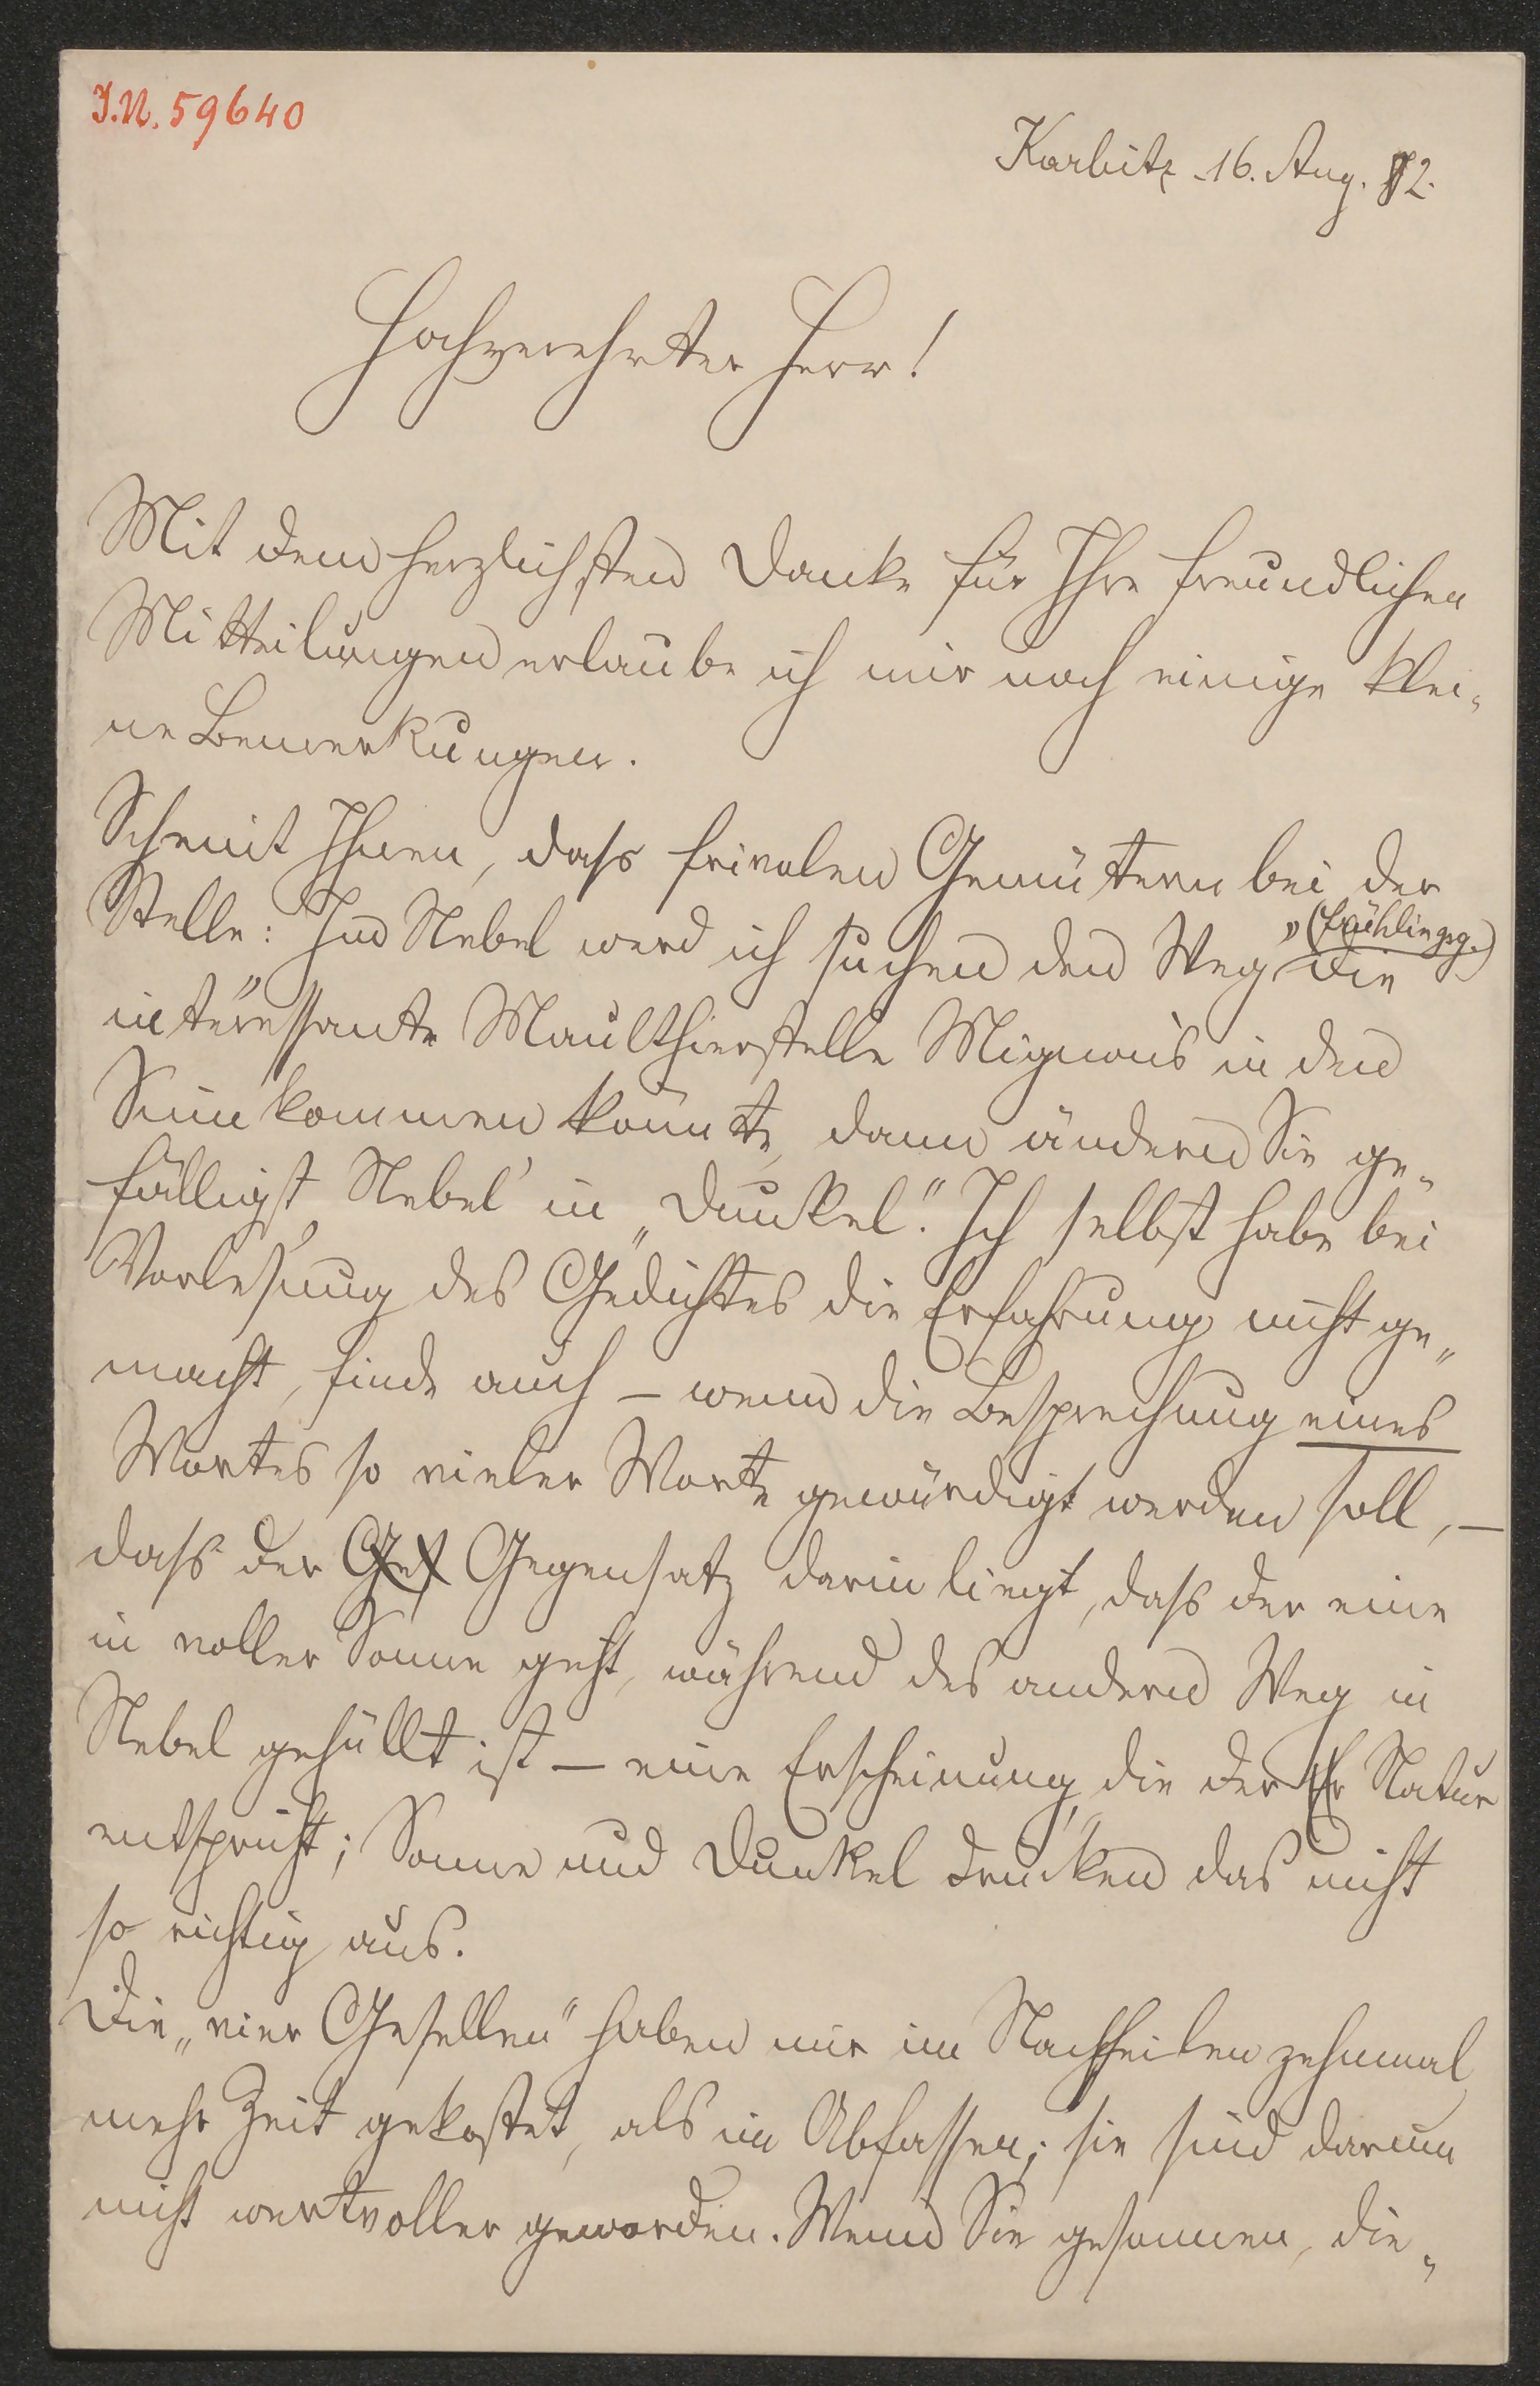 I.N. 59640
Karbitz 16. Aug. 82.
Hochverehrter Herr!
Mit dem herzlichsten Danke für Ihre freundlichen
Mitteilungen erlaube ich mir noch einige klei-
ne Bemerkungen.
Scheint Ihnen, dass frivolen Gemütern bei der
Stelle: „Im Nebel werd ich suchen den Weg" (Frühlingsg.) die
interessante Maulthierstelle Mignon's in den
Sinn kommen könnte, dann ändern Sie ge-
fälligst ‚Nebel' in „Dunkel". Ich selbst habe bei
Vorlesung des Gedichtes die Erfahrung nicht ge-
macht, finde auch – wenn die Besprechung eines
Wortes so vieler Worte gewürdigt werden soll, –
dass der Ges Gegensatz darin liegt, dass der eine
in voller Sonne geht, während des andern Weg in
Nebel gehüllt ist – eine Erscheinung, die der Natur
entspricht; Sonne und Dunkel drücken das nicht
so richtig aus.
Die „vier Gesellen" haben mir im Nachfeilen zehnmal
mehr Zeit gekostet, als im Abfassen; sie sind darum
nicht wertvoller geworden. Wenn Sie gesonnen, die-